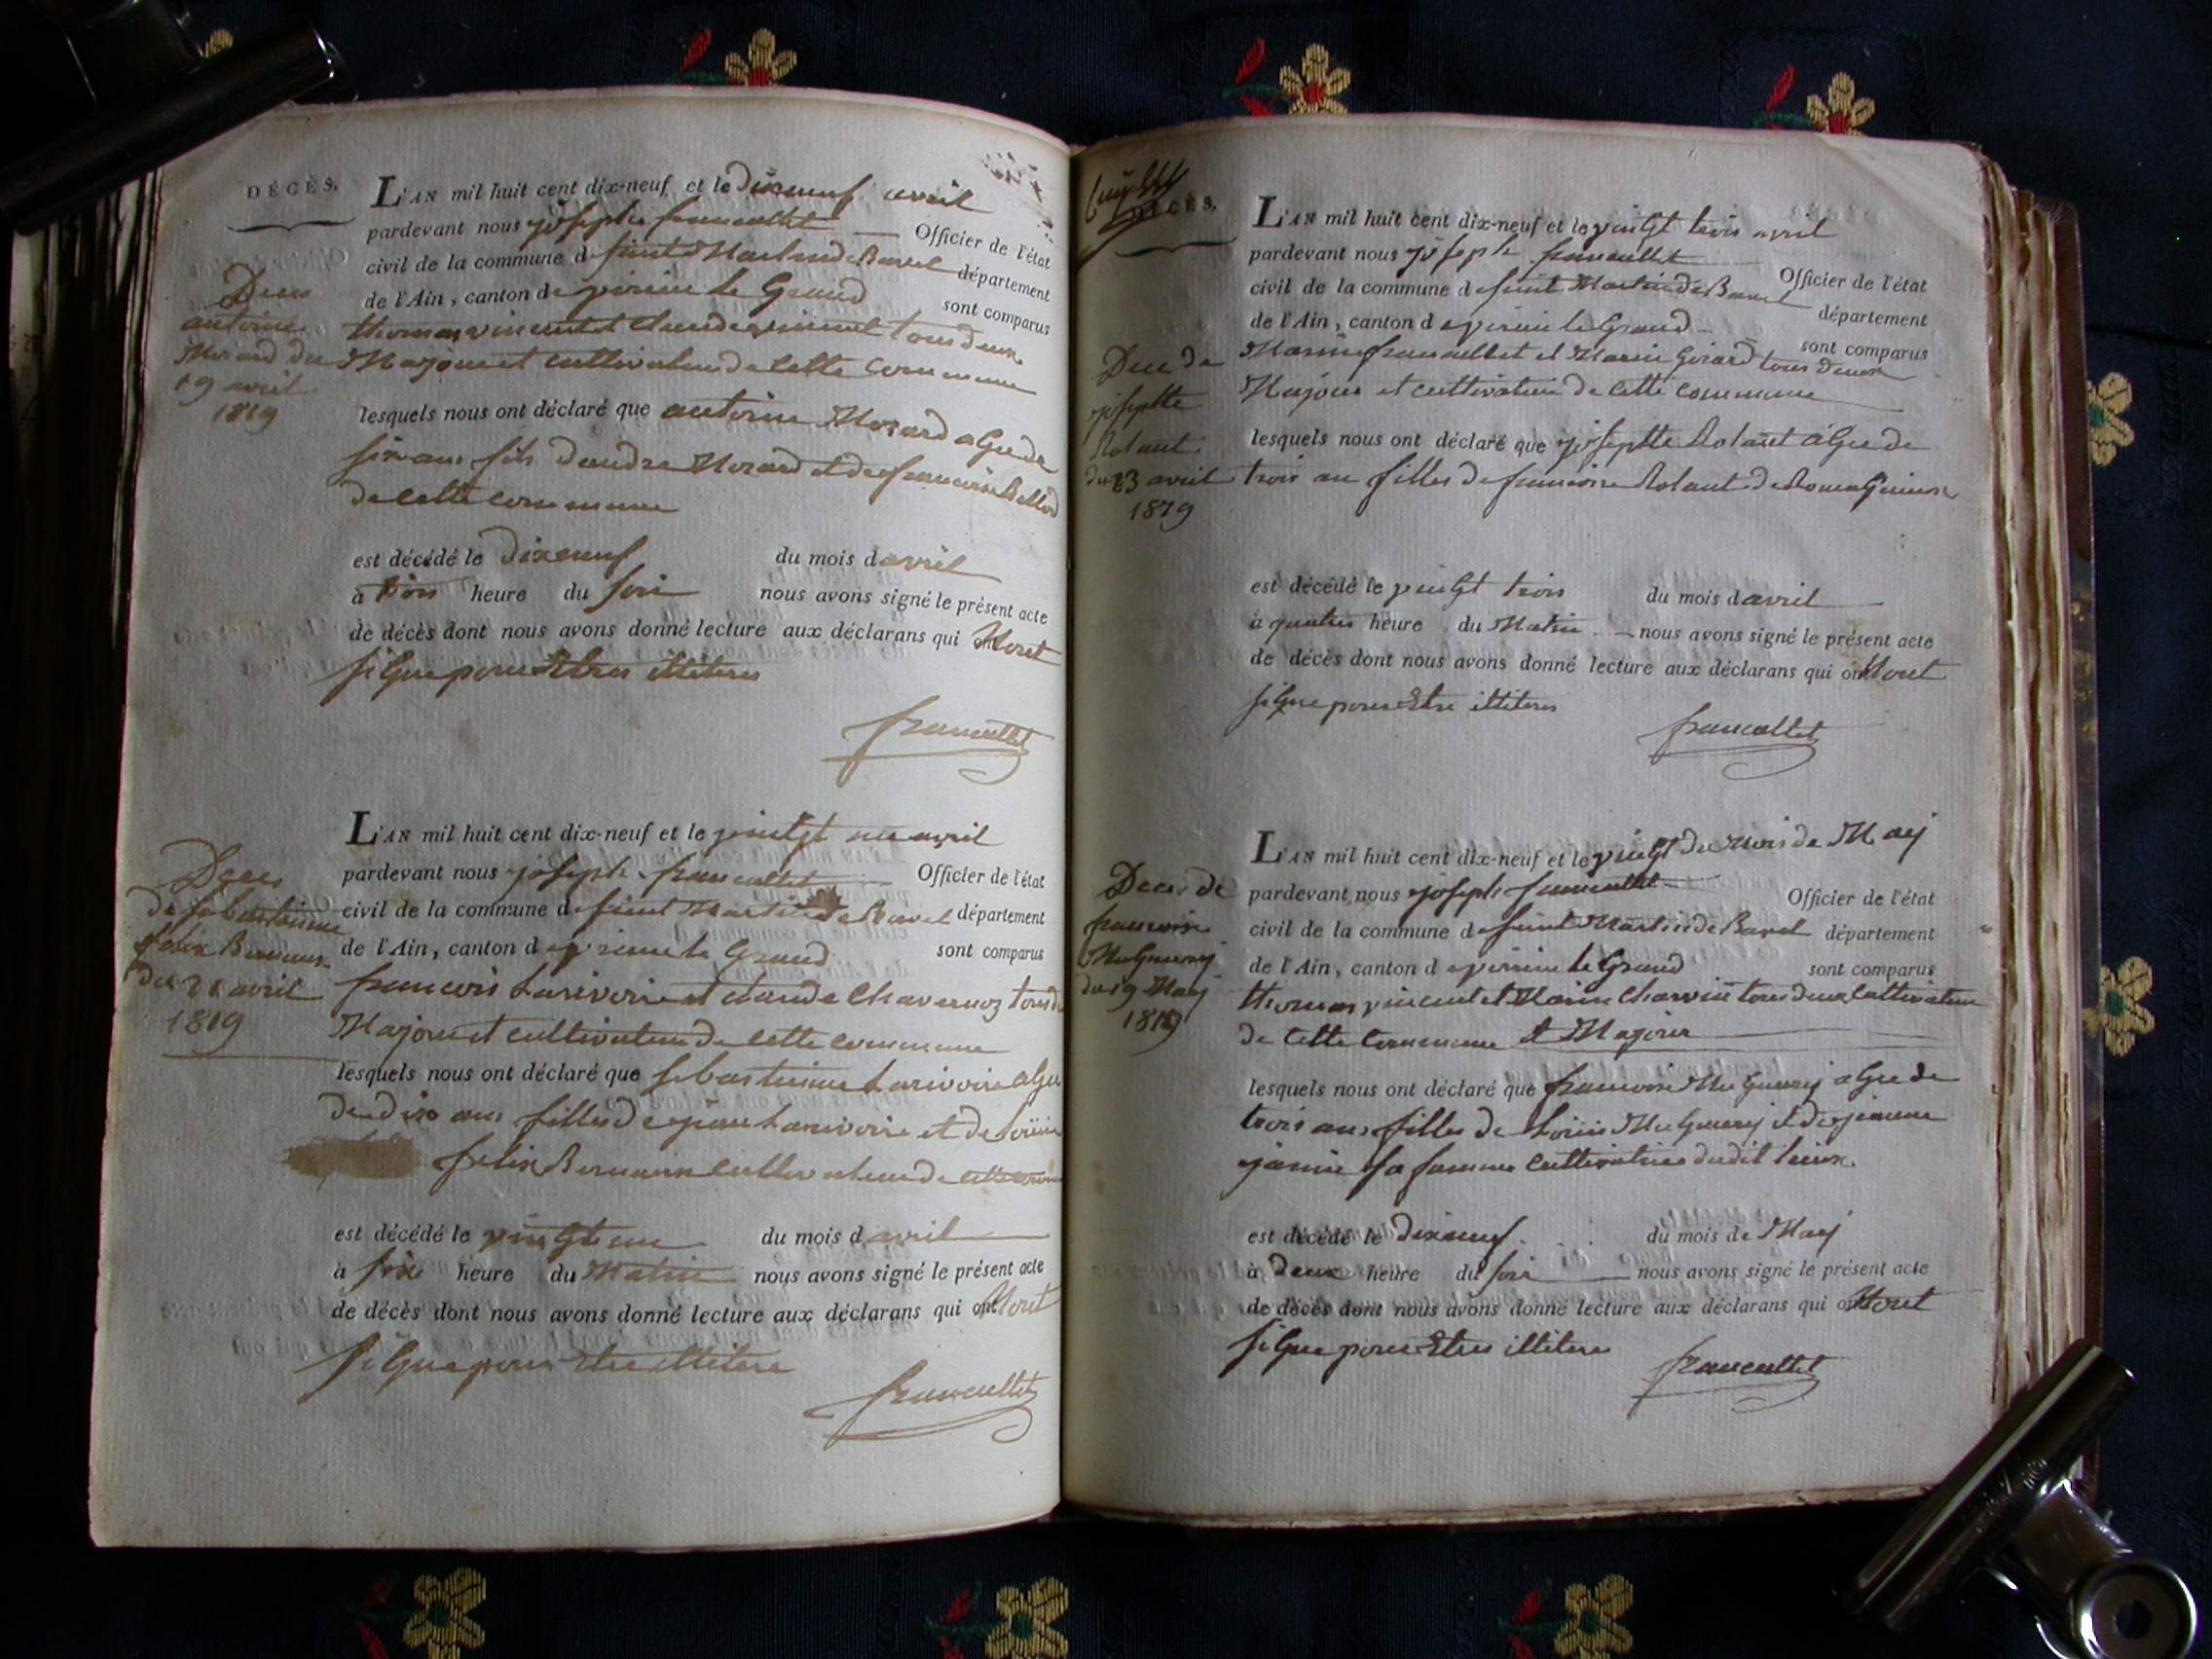 DÉCÈS.
L'AN mil huit cent dix-neuf et le dixneuf avril
pardevant nous joseph francallet Officier de l'état
civil de la commune de saint Martin de Bavel département
de l'Ain, canton de virieu le Grand sont comparus
thomas vincent et claude vincent tous deux
Majeur et cultivateur de cette commune
lesquels nous ont déclaré que antoine Morard aGé de
six ans fils dandre Morard et de francoise
de cette commune
est décédé le dixneuf du mois d avril
à trois heure du soir nous avons signé le présent acte
de décès dont nous avons donné lecture aux déclarans qui ont Nont
siGné pour Etres illiteres
francallet
Deces
antoine
Morard du
19 avril
1819
L'AN mil huit cent dix-neuf et le vintGt un avril
pardevant nous joseph francallet Officier de l'état
civil de la commune de saint Martin de Bavel département
de l'Ain, canton de virieu le Grand sont comparus
francois Larivoire et claude Chavernoz tous
Majeur et cultivateur de cette commune
lesquels nous ont déclaré que sebastienne Larivoire aGé
de dix ans filles de Larivoire et de
felix cultivateur de cette
est décédé le vintGt un du mois d avril
à six heure du Matin nous avons signé le présent acte
de décès dont nous avons donné lecture aux déclarans qui ont Nont
siGné pour Etre illitere
francallet
Deces
de sebastienne
felix
du 21 avril
1819
DÉCÈS.
L'AN mil huit cent dix-neuf et le vintGt trois avril
pardevant nous joseph francallet Officier de l'état
civil de la commune de saint Martin de Bavel département
de l'Ain, canton d virieu le Grand sont comparus
francallet et Marin Girard tous deux
Majeur et cultivateur de cette commune
lesquels nous ont déclaré que josephte Rolant aGé de
trois an filles de francoise Rolant de
est décédé le vintGt trois du mois d avril
à quatres heure du Matin nous avons signé le présent acte
de décès dont nous avons donné lecture aux déclarans qui ont Nont
siGné pour Etre illiteres
francallet
Dece de
josephte
Rolant
du 23 avril
1819
L'AN mil huit cent dix-neuf et le vintGt du Mois de May
pardevant nous joseph francallet Officier de l'état
civil de la commune de saint Martin de Bavel département
de l'Ain, canton d virieu le Grand sont comparus
thomas vincent et Marin Charvin tous deux Cultivateur
de Cette Commune et Majeur
lesquels nous ont déclaré que francoise aGé de
trois ans filles de Loüis et de jeanne
janin sa femme Cultivatrice dudit Lieux.
est décédé le dixneuf du mois de May
à deux heure du soir nous avons signé le présent acte
de décès dont nous avons donné lecture aux déclarans qui ont Nont
siGné pour Etres illiteres
francallet
Deces de
francoise
du 19 May
1819